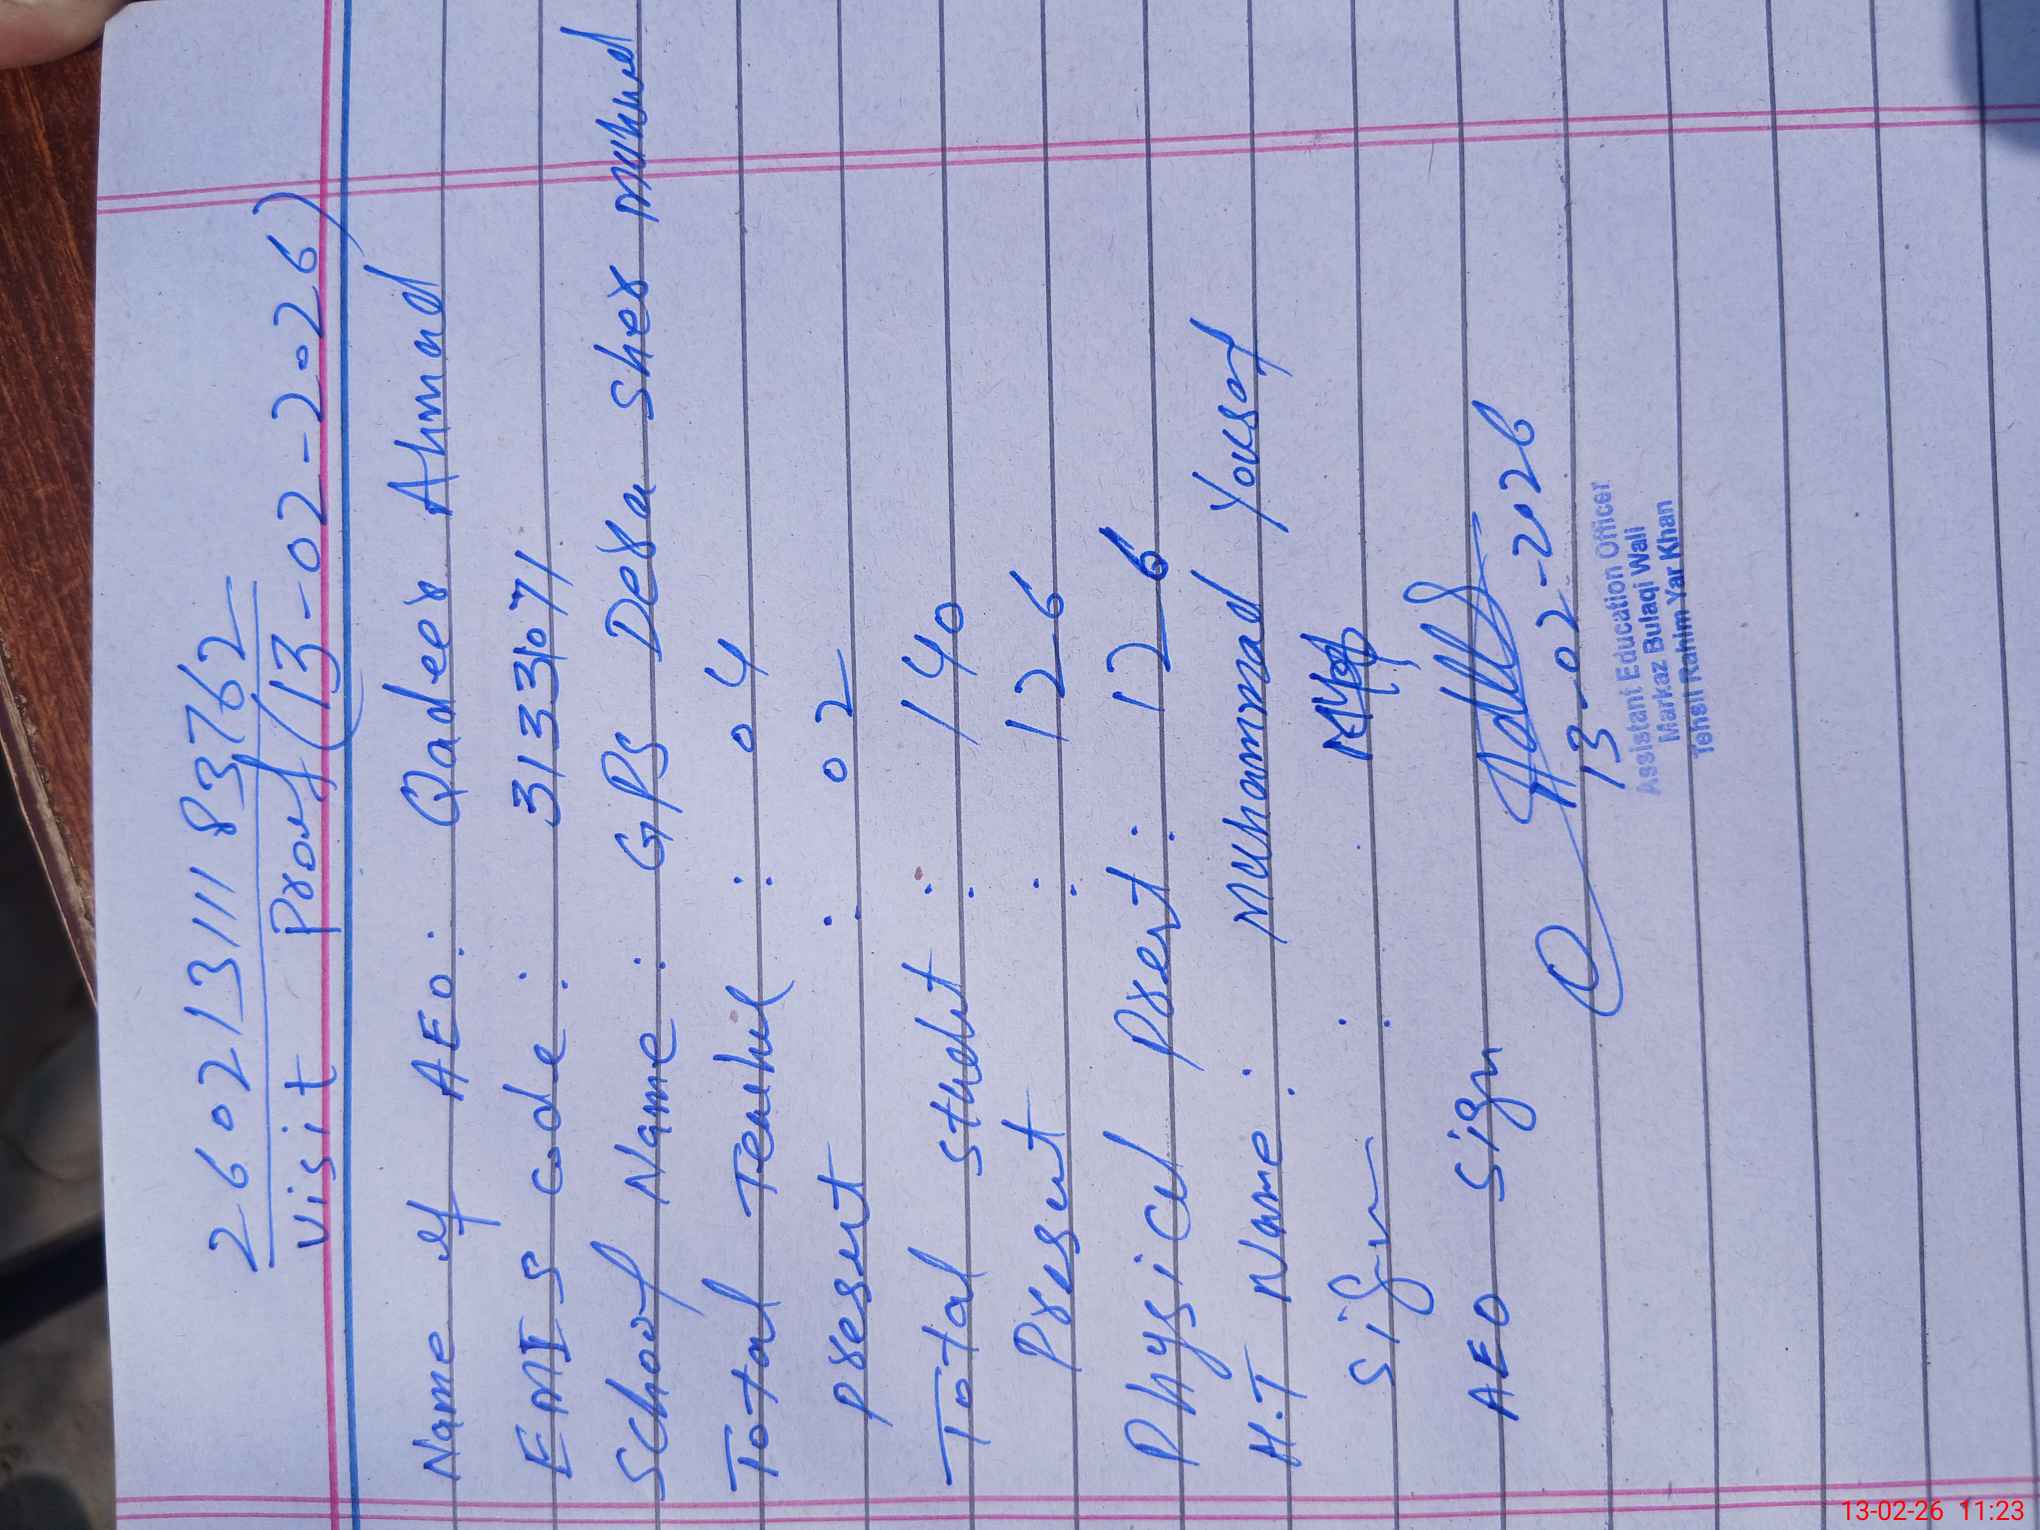 2602131118 3762
Visit Proof (13-02-2026)
Name of AEO: Qadeer Ahmad
EMIS code: 31331071
School Name: GPS Dera Sher Muhmd
Total Teacher : 04
Present : 02
Total Student : 140
Present : 126
Physical Present : 126
H.T Name : Muhammad Yousaf
Sign :
AEO Sign
13-02-2026
Assistant Education Officer
Markaz Bulaqi Wali
Tehsil Rahim Yar Khan
13-02-26 11:23